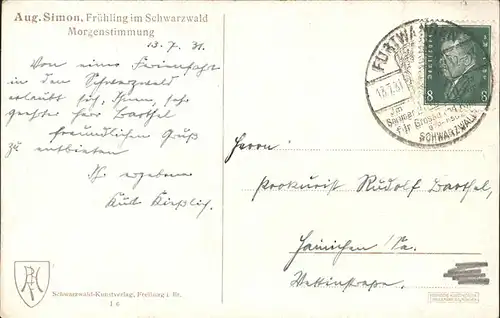 Aug. Simon, Frühling im Schwarzwald
Morgenstimmung
13.7.31.
Von einer Ferienfahrt
in den Schwarzwald
erlaubt sich, Ihnen, sehr
geehrter Herr Barthel
freundlichen Gruß
zu entbieten
Ihr ergebener
Kurt
FURTWANGEN
13.7.31
Im
Sommer
für
SCHWARZWALD
8 8
Herrn
Prokurist Rudolf Barthel,
Hainichen /Sa.
Wettinstrasse.
Schwarzwald-Kunstverlag, Freiburg i. Br.
I 6